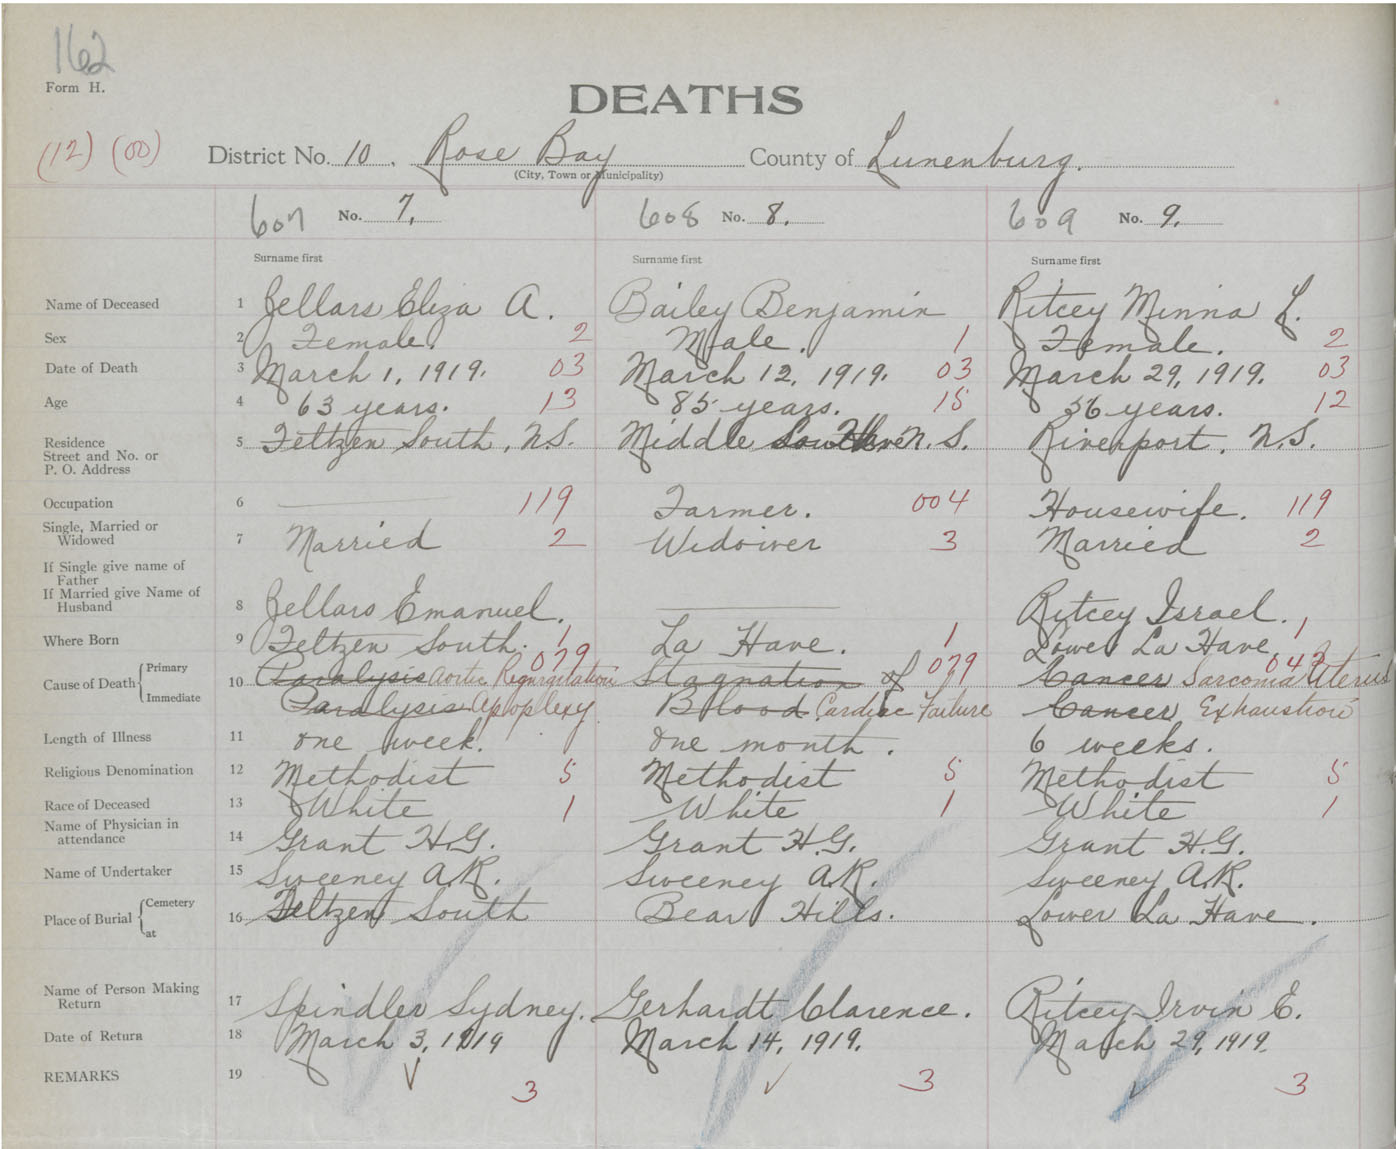 162
Form H.
DEATHS
(12) (00) District No. 10. Rose Bay County of Lunenburg.
(City, Town or Municipality)
607 No. 7. 608 No. 8. 609 No. 9.
Surname first Surname first Surname first
Name of Deceased 1 Zellars Eliza A. Bailey Benjamin Ritcey Minna L.
Sex 2 Female. 2 Male. 1 Female. 2
Date of Death 3 March 1, 1919. 03 March 12, 1919. 03 March 29, 1919. 03
Age 4 63 years. 13 85 years. 15 56 years. 12
Residence
Street and No. or
P. O. Address 5 Feltzen South, N.S. Middle N.S. Riverport, N.S.
Occupation 6 119 Farmer. 004 Housewife. 119
Single, Married or
Widowed 7 Married 2 Widower 3 Married 2
If Single give name of
Father
If Married give Name of
Husband 8 Zellars Emanuel. Ritcey Israel.
Where Born 9 Feltzen South. 1 La Have. 1 Lower La Have, 1
079 079 043
Cause of Death Primary 10 Paralysis Aortic Regurgitation Stagnation of Cancer Sarcoma Uterus
Immediate Paralysis Apoplexy Blood Cardiac Failure Cancer Exhaustion
Length of Illness 11 one week. one month. 6 weeks.
Religious Denomination 12 Methodist 5 Methodist 5 Methodist 5
Race of Deceased 13 White 1 White 1 White 1
Name of Physician in
attendance 14 Grant H.G. Grant H.G. Grant H.G.
Name of Undertaker 15 Sweeney A.R. Sweeney A.R. Sweeney A.R.
Place of Burial Cemetery
at 16 Feltzen South Bear Hills. Lower La Have.
Name of Person Making
Return 17 Spindler Sydney. Gerhardt Clarence. Ritcey Irvin E.
Date of Return 18 March 3, 1919 March 14, 1919. March 29, 1919.
REMARKS 19 3 3 3